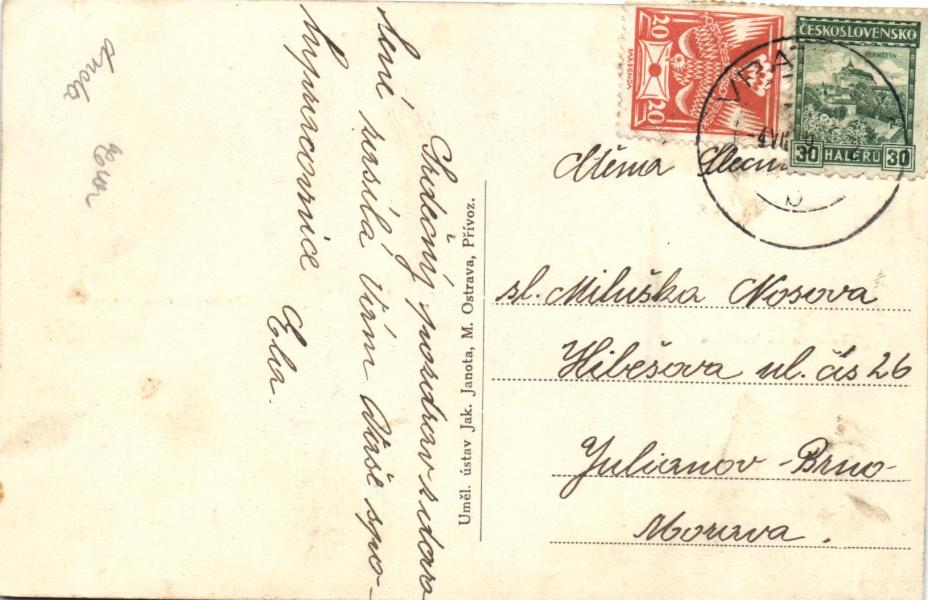 Srdečný pozdrav z dara
lené zasílá Vám Vaše spo-
lupracovnice
Ela.
Uměl. ústav Jak. Janota, M. Ostrava, Přívoz.
20 20
ČESKOSLOVENSKO
PERNŠTÝN
30 HALÉRŮ 30
Ctěna Slecna
sl. Miluška Nosova
Hibešova ul. čís 26
Julianov - Brno -
Morava.